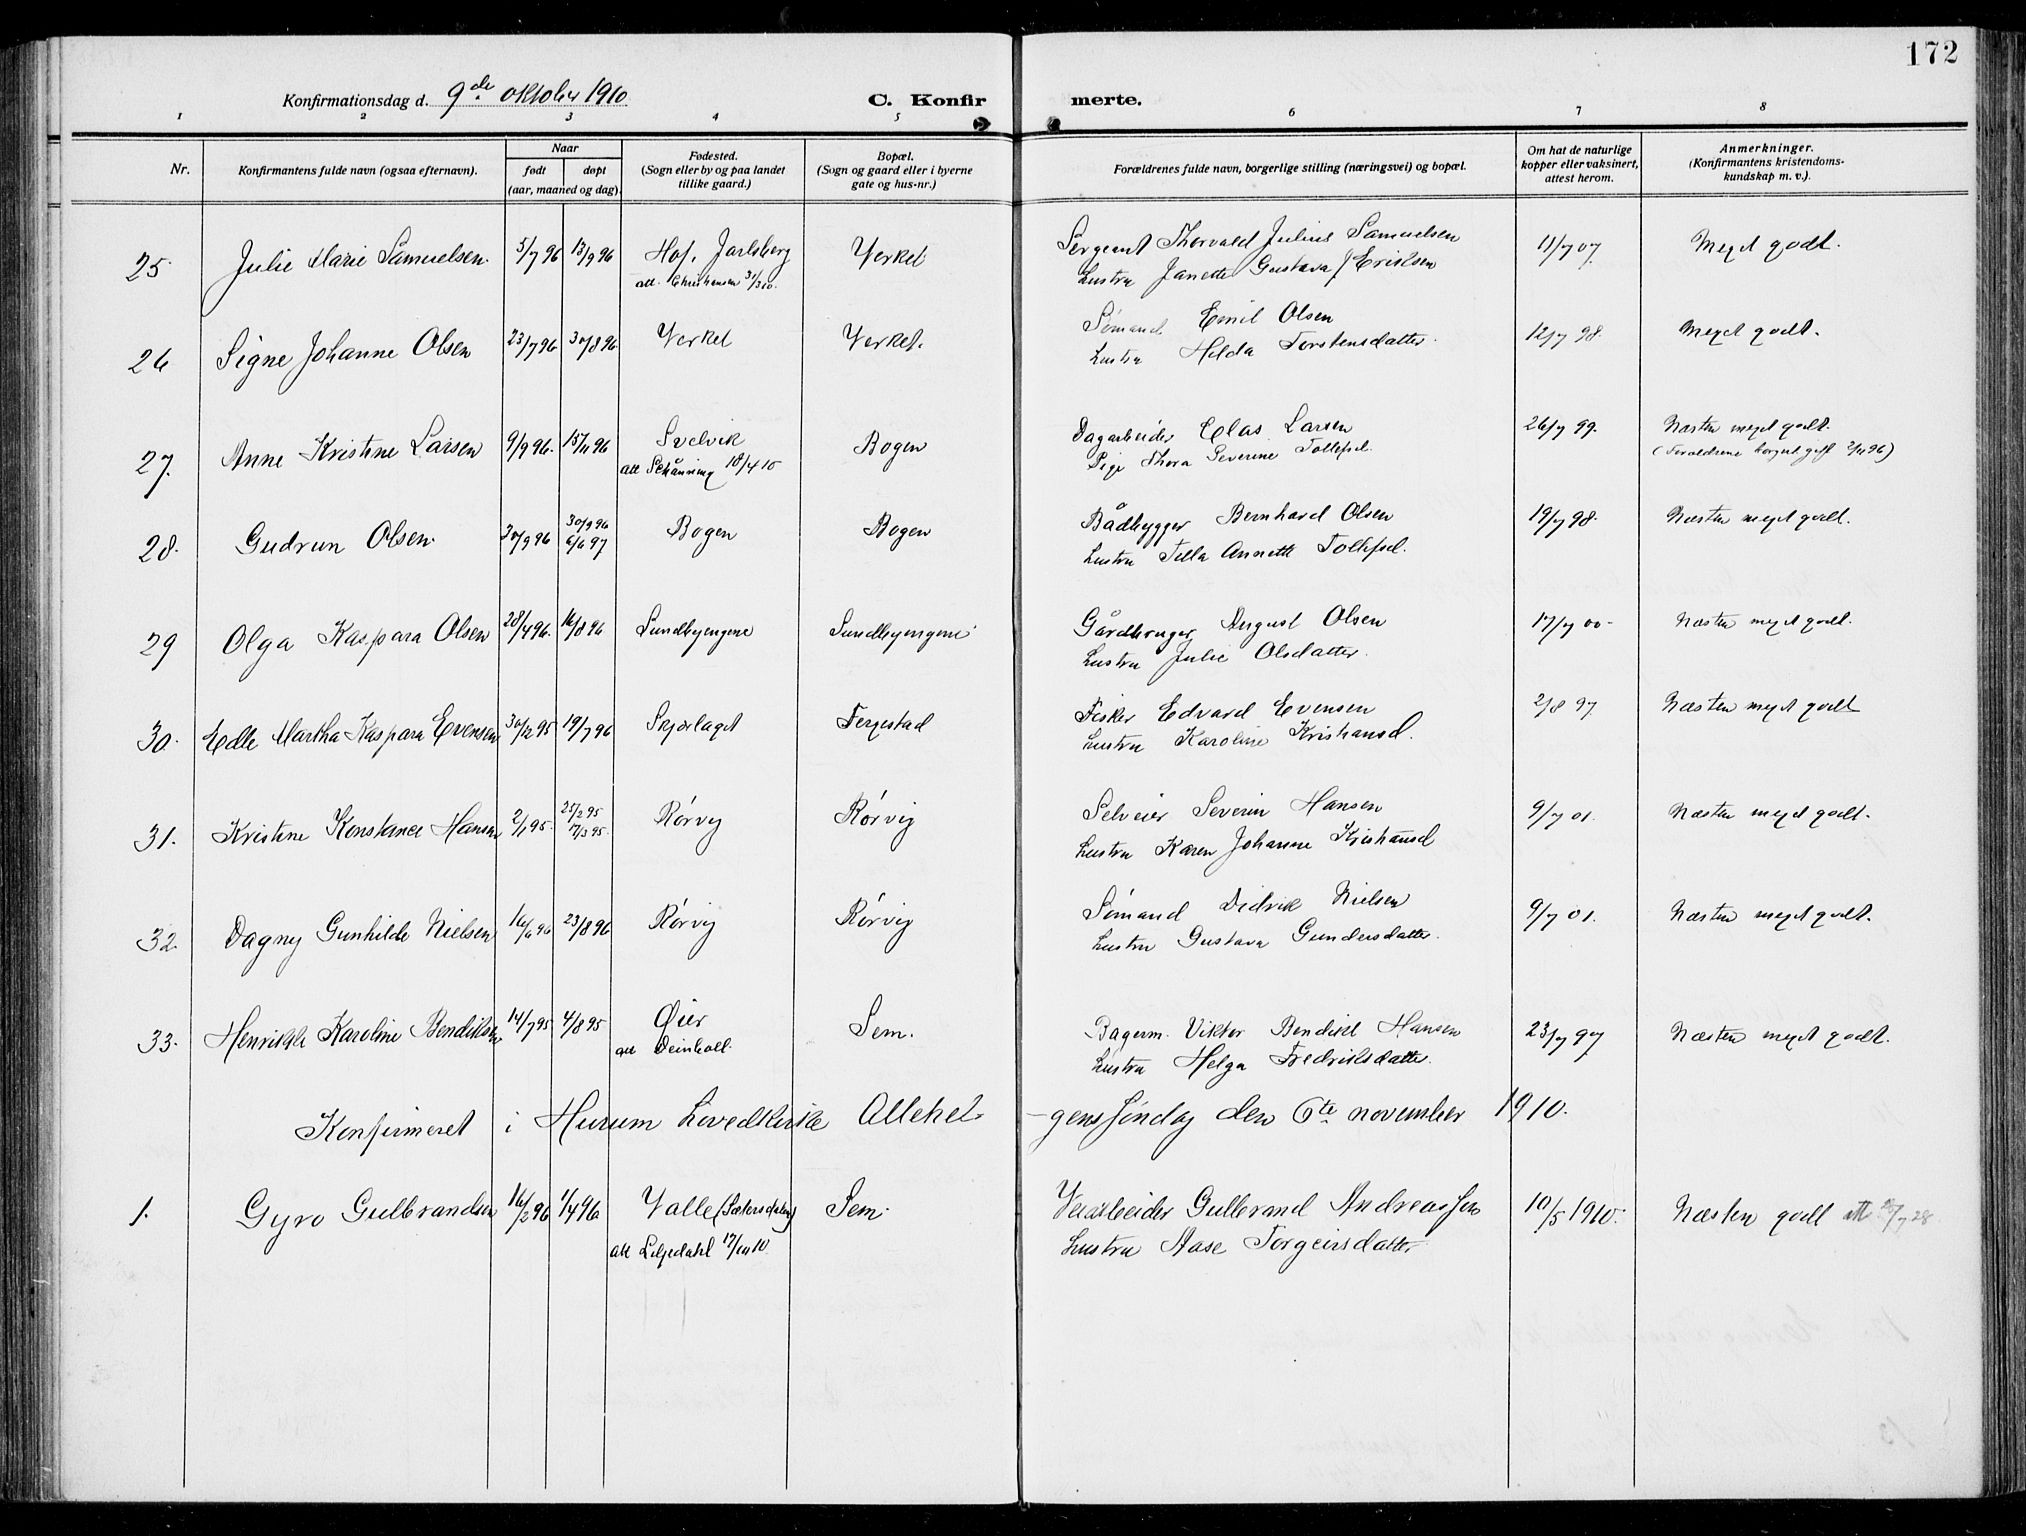 172
Konfirmationsdag d. 9de oktober 1910
C. Konfirmerte.
1 2 3 4 5 6 7 8
Nr.
Konfirmantens fulde navn (ogsaa efternavn).
Naar
født døpt
(aar, maaned og dag)
Fødested.
(Sogn eller by og paa landet
tillike gaard.)
Bopæl.
(Sogn og gaard eller i byerne
gate og hus-nr.)
Forældrenes fulde navn, borgerlige stilling (næringsvei) og bopæl.
Om hat de naturlige
kopper eller vaksinert,
attest herom.
Anmerkninger.
(Konfirmantens kristendoms-
kundskap m. v.).
25 Julie Marie Samuelsen 5/7 96 13/9 96 Hof, Jarlsberg Verket Sergeant Thorvald Julius Samuelsen 11/7 07 Meget godt.
att. Christiansen 31/3 10. Hustru Janette Gustava Eriksen
26 Signe Johanne Olsen 23/7 96 30/8 96 Verket Verket. Sømand Emil Olsen 12/7 98. Meget godt.
Hustru Hilda Torstensdatter.
27. Anne Kristine Larsen 9/9 96. 15/11 96 Svelvik Bogen Dagarbeider Clas Larsen 26/7 99. Næsten meget godt.
att Schånning 18/4 10 Pige Thora Severine Tollefsd. (Forældrene borgerl. gift 2/11 96)
28. Gudrun Olsen. 30/9 96 30/9 96 Bogen Bogen Bådbygger Bernhard Olsen 19/7 98. Næsten meget godt.
6/6 97 Hustru Tilla Annette Tollefsd.
29 Olga Kaspara Olsen 28/4 96. 16/8 96 Sundbyengene Sundbyengene Gårdbruger August Olsen 17/7 00. Næsten meget godt.
Hustru Julie Olsdatter.
30. Edle Martha Kaspara Evensen 30/12 95 19/7 96 Skjørlaget Ferjestad Fisker Edvard Evensen 2/8 97 Næsten meget godt
Hustru Karoline Kristiansd.
31. Kristine Konstance Hansen 2/1 95. 25/2 95 Rørvig Rørvig Selveier Severin Hansen 9/7 01. Næsten meget godt.
17/3 95. Hustru Karen Johanne Kristiansd
32. Dagny Gunhilde Nielsen 16/6 96 23/8 96 Rørvig Rørvig Sømand Didrik Nielsen 9/7 01. Næsten meget godt.
Hustru Gustava Gundersdatter.
33. Henrikke Karoline Bendiksen 14/7 95 4/8 95 Øier Sem. Bagerm. Viktor Bendikt Hansen 23/7 97 Næsten meget godt.
att Deinboll. Hustru Helga Fredriksdatter.
Konfirmeret i Hurum hovedkirke Allehel-gens søndag den 6te november 1910.
1. Gyro Gulbrandsen 16/2 96 1/4 96 Valle (Sætersdalen) Sem. Veiarbeider Gulbrand Andreassen 10/5 1910. Næsten godt att 27/7 28.
att Liljedahl 17/10 10 Hustru Aase Torgeirsdatter